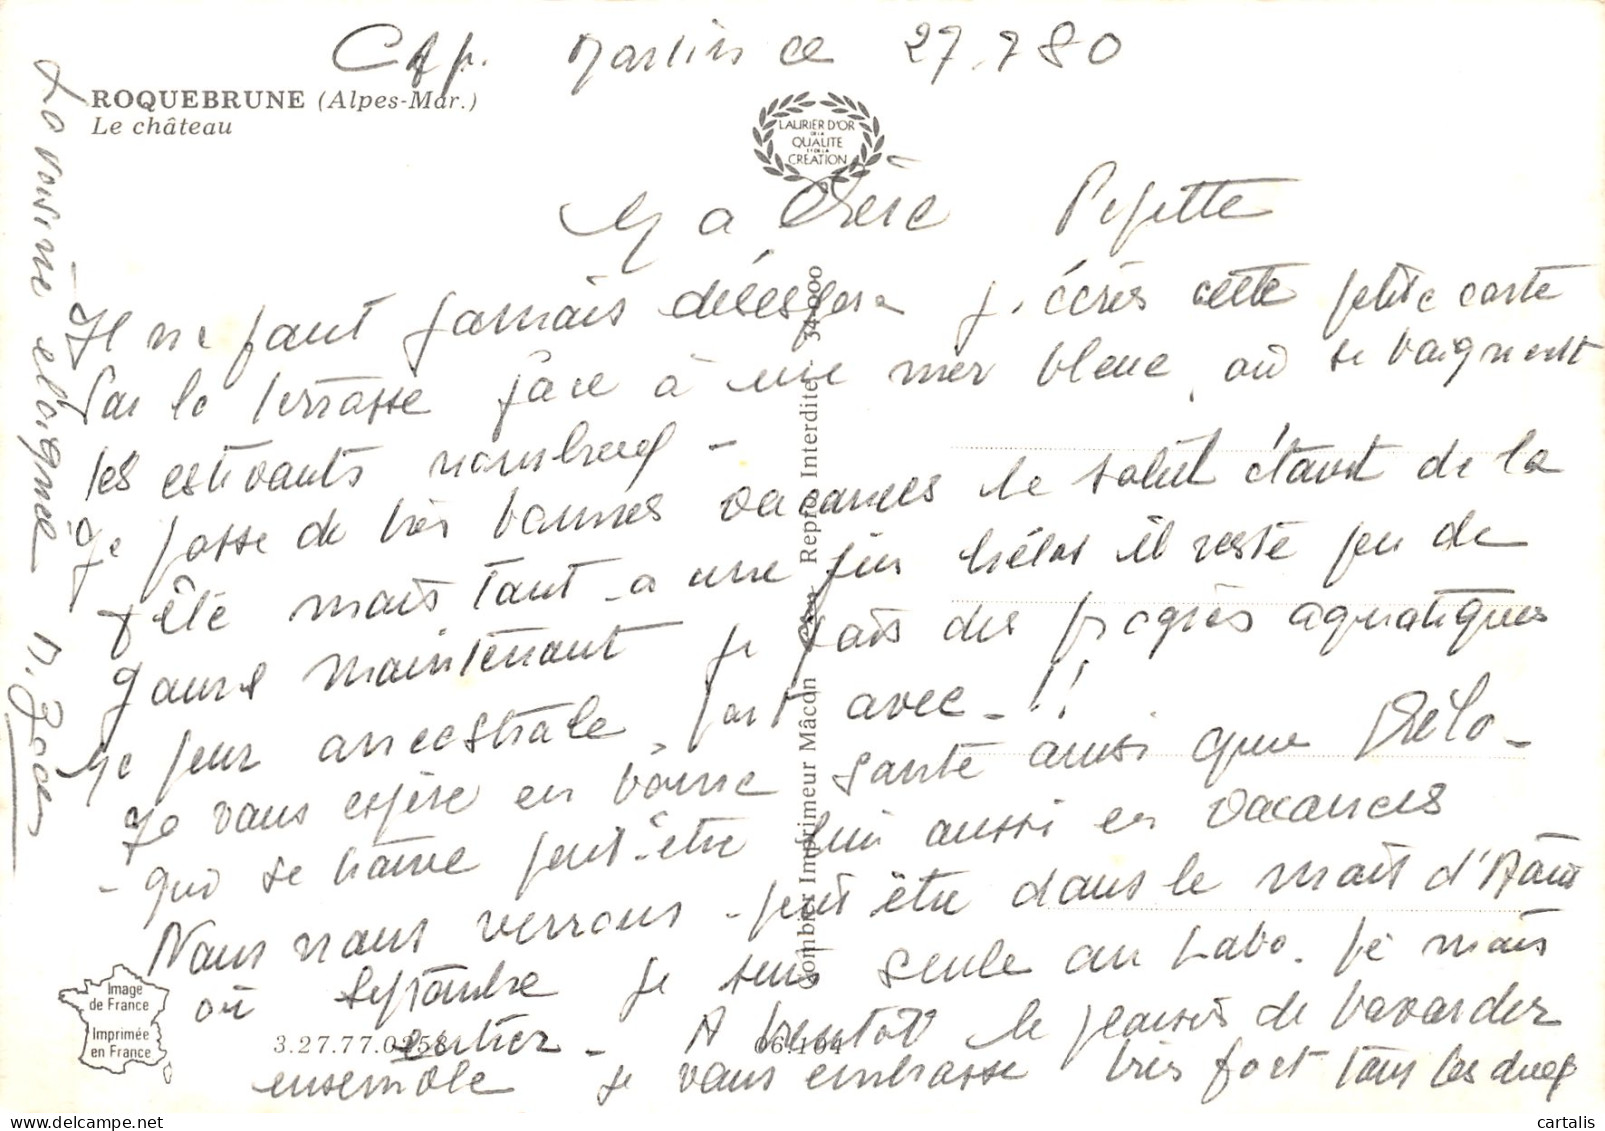 Cap. Martin ce 27.7 80
ROQUEBRUNE (Alpes-Mar.)
Le château
LAURIER D'OR
DE LA
QUALITE
ET DE LA
CREATION
Ma chère Pepette
Il ne faut jamais désespérer j'écris cette petite carte
sur la terrasse face à une mer bleue où se baignent
les estivants nombreux -
Je passe de très bonnes vacances le soleil étant de la
fête mais tant a une fin hélas il reste peu de
jours maintenant je fais des progrès aquatiques
ma peur ancestrale part avec - !!
Je vous espère en bonne santé ainsi que
- qui se trouve peut-être lui aussi en vacances
Nous nous verrons peut être dans le mois d'Août
où Septembre je suis seule au Labo. le mois
entier - A bientôt le plaisir de bavarder
ensemble je vous embrasse très fort tous les deux
La voisine eloignée
Image
de France
Imprimée
en France
3.27.77.0258
06.104
Combier Imprimeur Mâcon Repro. Interdite - 34-000
cartalis